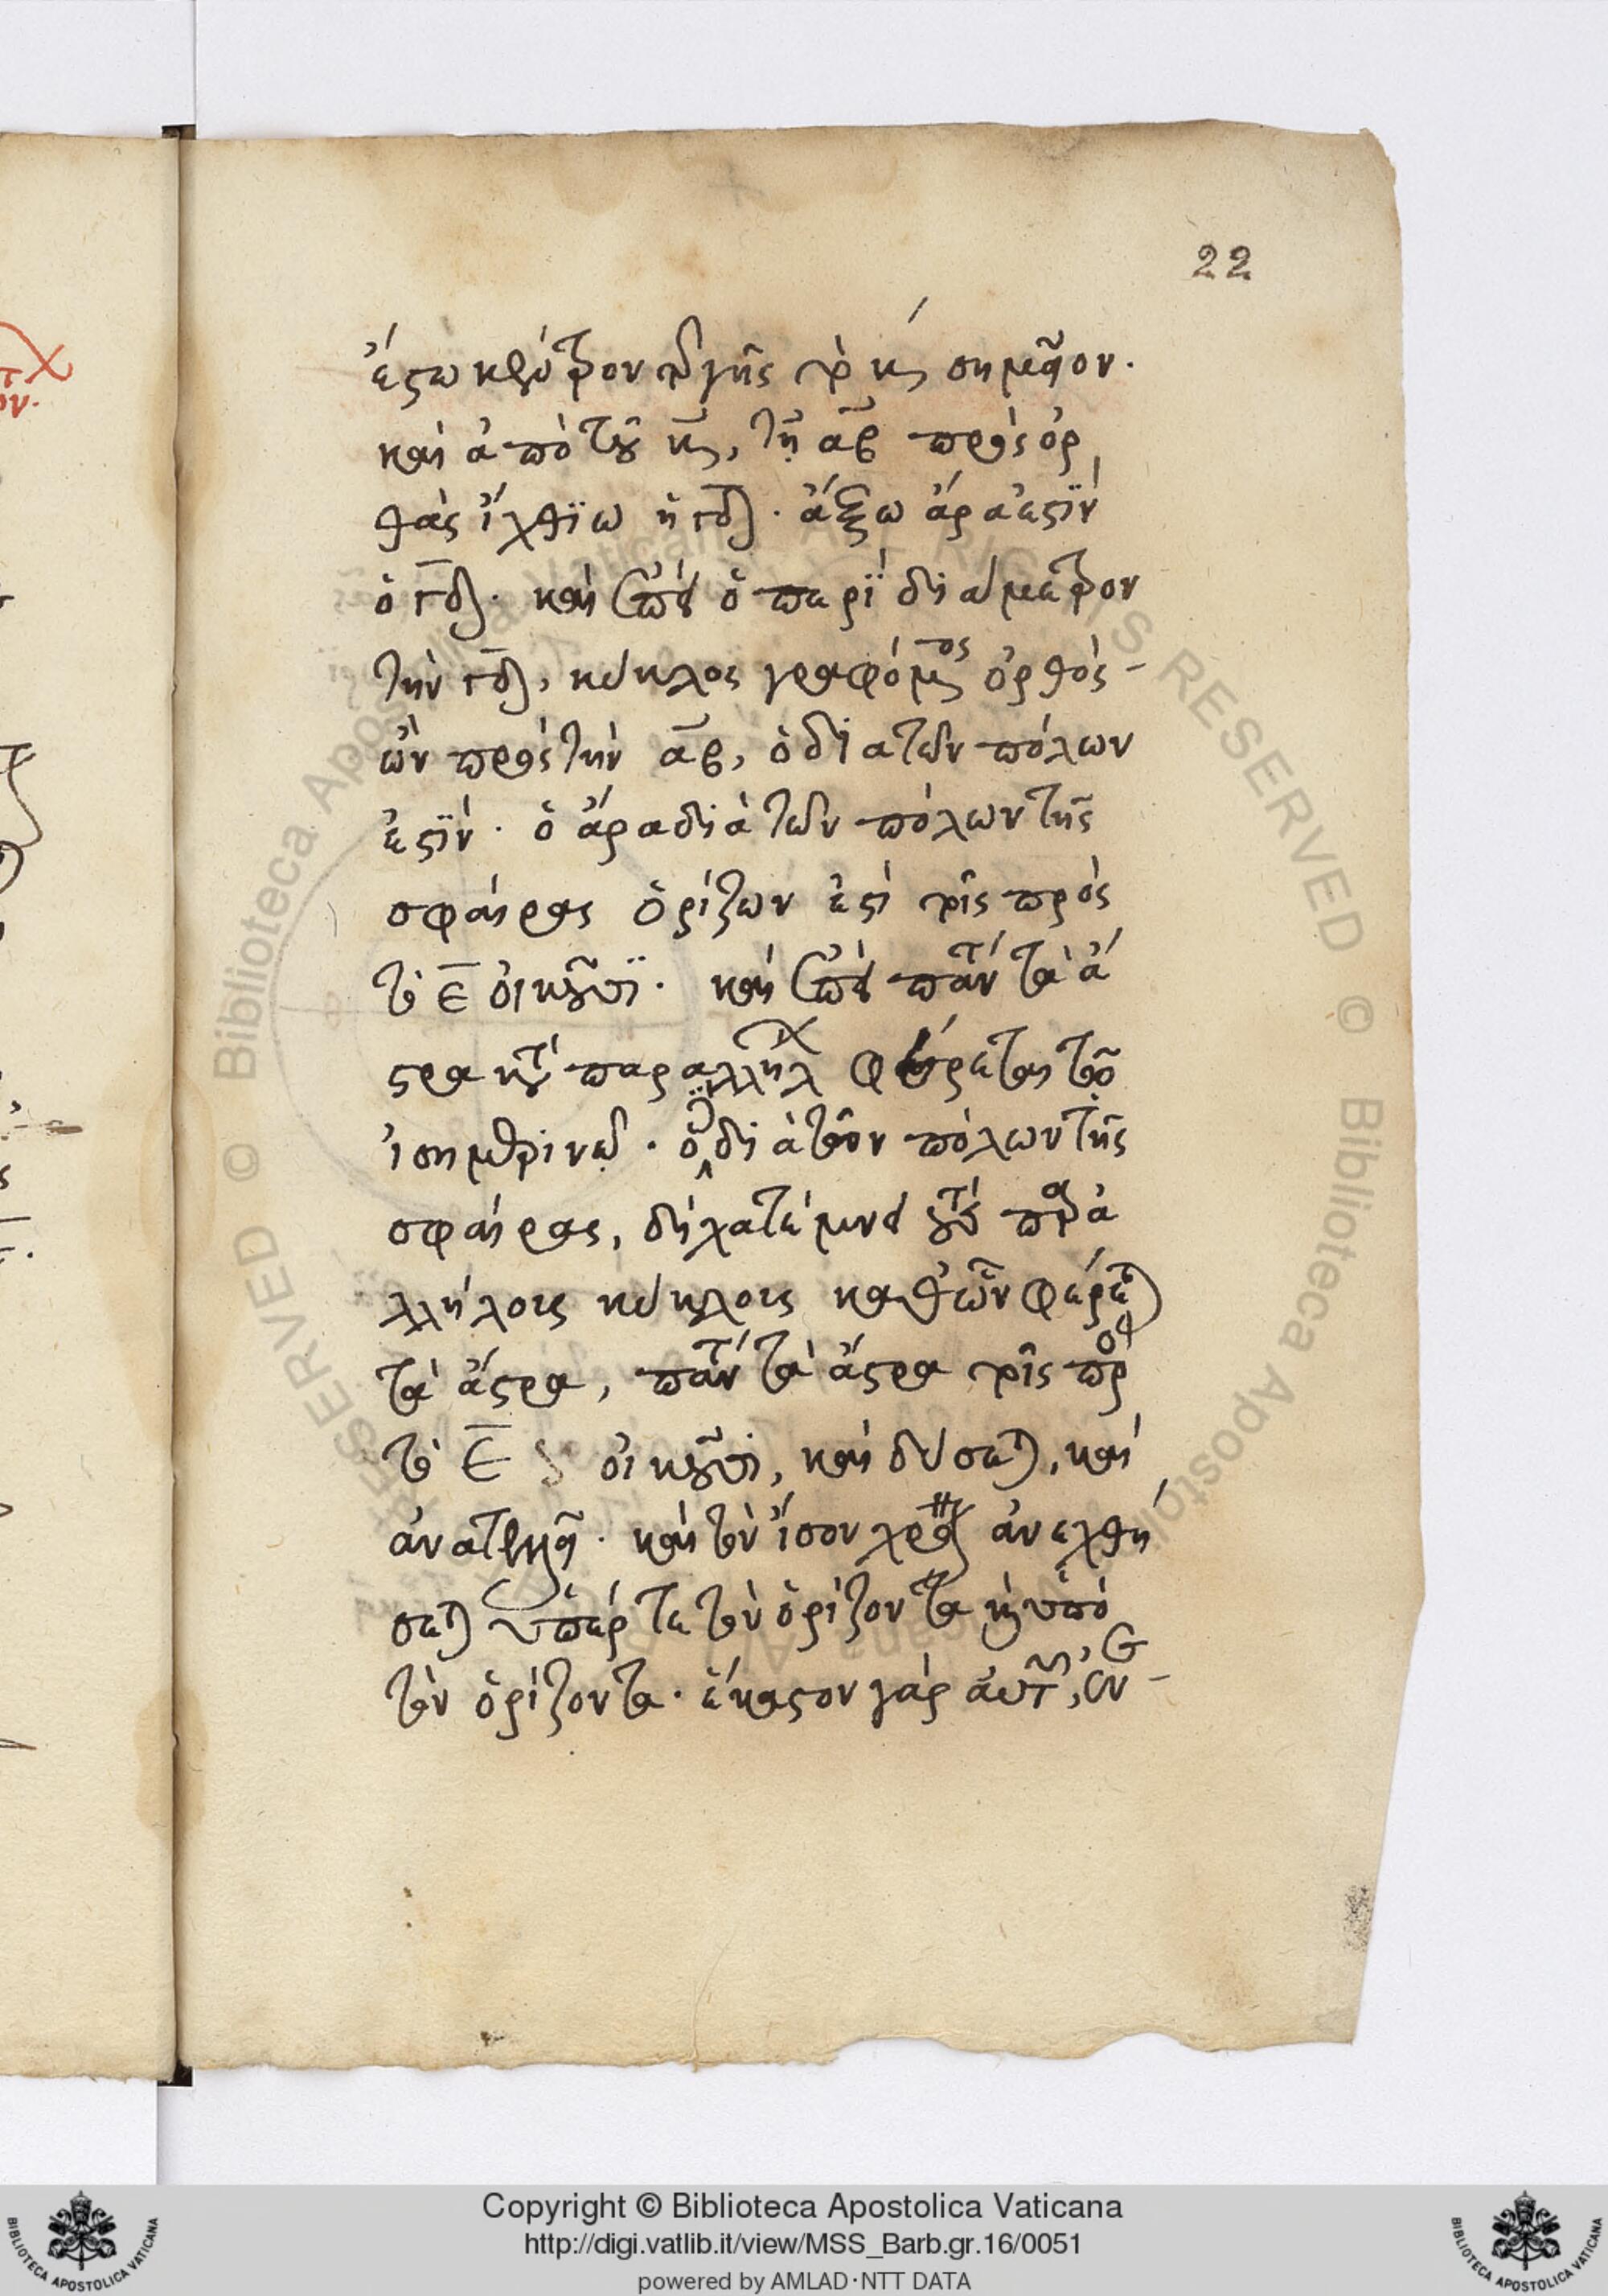 22
ἔστω κέντρον τῆς γῆς τὸ κ σημεῖον.
καὶ ἀπὸ τοῦ κ, τῇ αβ πρὸς ὀρ
θὰς ἤχθω ἡ γδ. ἄξων ἄρα ἐστὶν
ὁ γδ. καὶ ἐπεὶ ὁ περὶ διάμετρον
τὴν γδ, κύκλος γραφόμενος ὀρθὸς
ὢν πρὸς τὴν αβ, ὁ διὰ τῶν πόλων
ἐστίν. ὁ ἄρα διὰ τῶν πόλων τῆς
σφαίρας ὁρίζων ἐστὶ τοῖς πρὸς
τὸ ε οἰκοῦσι. καὶ ἐπεὶ πάντα τὰ ἄ
στρα κατὰ παραλλήλων φέρεται τῷ
ἰσημερινῷ. ὁ δὲ διὰ τῶν πόλων τῆς
σφαίρας, δίχα τέμνει τοὺς παρα
λλήλους κύκλους καθ' ὧν φέρεται
τὰ ἄστρα, πάντα τὰ ἄστρα τοῖς πρὸς
τὸ ε οἰκοῦσι, καὶ δύσεται, καὶ
ἀνατελεῖ. καὶ τὸν ἴσον χρόνον ἀνεχθή
σεται ὑπέρ τε τὸν ὁρίζοντα καὶ ὑπὸ
τὸν ὁρίζοντα. ἕκαστον γὰρ αὐτῶν, ἐν
Copyright © Biblioteca Apostolica Vaticana
http://digi.vatlib.it/view/MSS_Barb.gr.16/0051
powered by AMLAD·NTT DATA
BIBLIOTECA APOSTOLICA VATICANA
BIBLIOTECA APOSTOLICA VATICANA